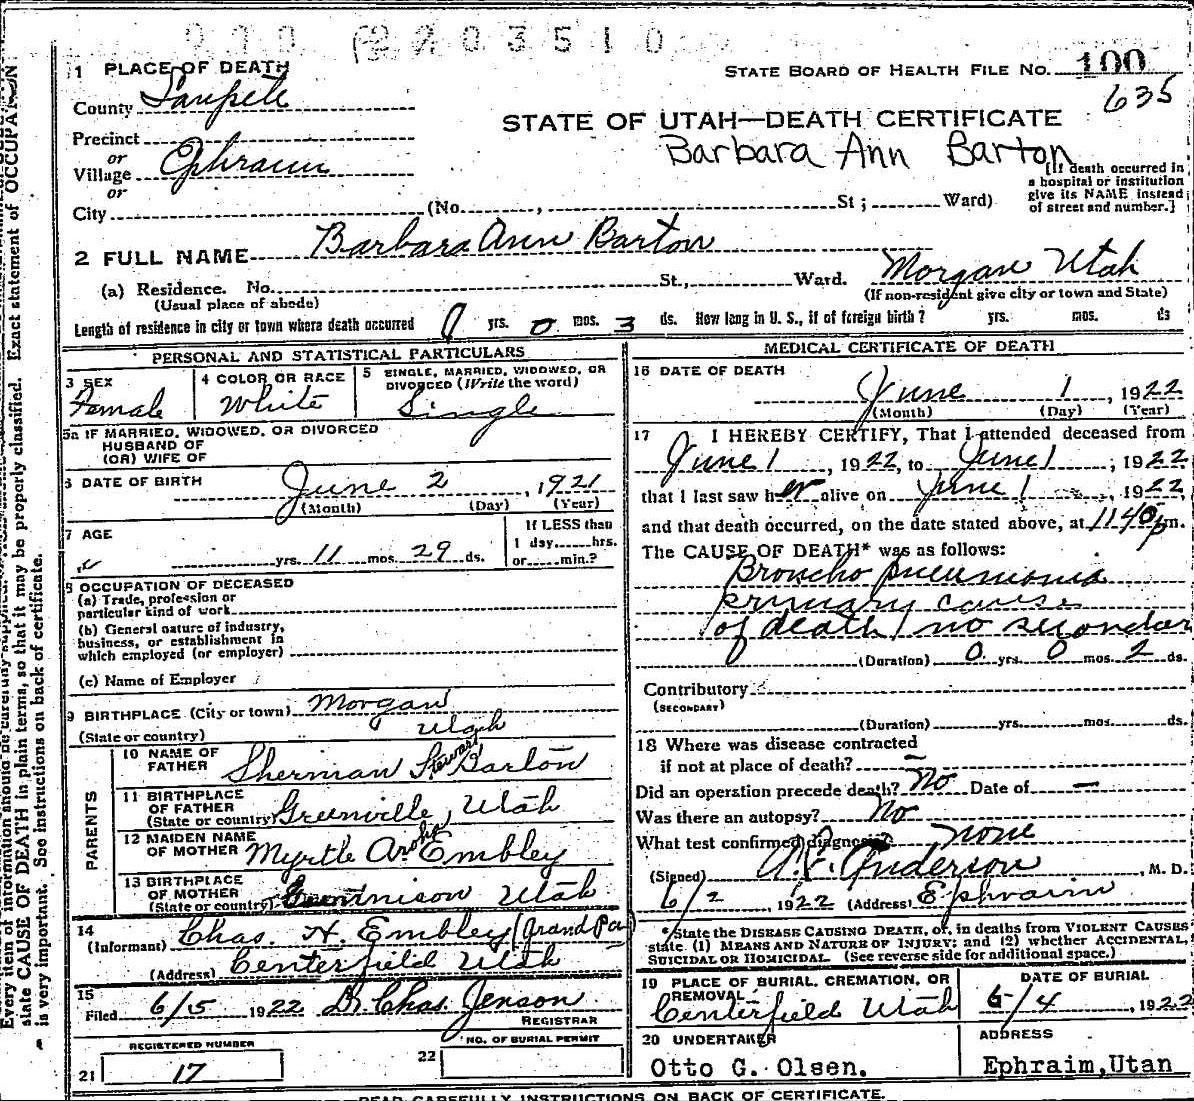 0 1 0 0 3 5 1 0
1 PLACE OF DEATH
STATE BOARD OF HEALTH FILE NO. 100
635
County Sanpete
STATE OF UTAH—DEATH CERTIFICATE
Precinct
or
Barbara Ann Barton
Village Ephraim
or
[If death occurred in
a hospital or institution
give its NAME instead
of street and number.]
City (No. , St ; Ward)
2 FULL NAME Barbara Ann Barton
(a) Residence. No. St., Ward. Morgan Utah
(Usual place of abode) (If non-resident give city or town and State)
Length of residence in city or town where death occurred 0 yrs. 0 mos. 3 ds. How long in U. S., if of foreign birth? yrs. mos. ds
PERSONAL AND STATISTICAL PARTICULARS
3 SEX
Female
4 COLOR OR RACE
White
5 SINGLE, MARRIED, WIDOWED, OR
DIVORCED (Write the word)
Single
5a IF MARRIED, WIDOWED, OR DIVORCED
HUSBAND OF
(OR) WIFE OF
6 DATE OF BIRTH June 2, 1921
(Month) (Day) (Year)
7 AGE
yrs. 11 mos. 29 ds.
If LESS than
1 day hrs.
or min.?
8 OCCUPATION OF DECEASED
(a) Trade, profession or
particular kind of work
(b) General nature of industry,
business, or establishment in
which employed (or employer)
(c) Name of Employer
9 BIRTHPLACE (City or town) Morgan
(State or country) Utah
PARENTS
10 NAME OF
FATHER Sherman Steward Barton
11 BIRTHPLACE
OF FATHER
(State or country) Greenville, Utah
12 MAIDEN NAME
OF MOTHER Myrtle Embley
13 BIRTHPLACE
OF MOTHER
(State or country) Utah
14
(Informant) Chas. H. Embley (Grand Pa)
(Address) Centerfield Utah
15
Filed 6/5 1922 Chas. Jenson
REGISTRAR
REGISTERED NUMBER
21 17
22 NO. OF BURIAL PERMIT
MEDICAL CERTIFICATE OF DEATH
16 DATE OF DEATH
June 1, 1922
(Month) (Day) (Year)
17 I HEREBY CERTIFY, That I attended deceased from
June 1, 1922, to June 1, 1922
that I last saw her alive on June 1, 1922,
and that death occurred, on the date stated above, at 1140 p m.
The CAUSE OF DEATH* was as follows:
Broncho pneumonia
primary cause
of death / no secondar
(Duration) 0 yrs. 0 mos. 2 ds.
Contributory
(SECONDARY)
(Duration) yrs. mos. ds.
18 Where was disease contracted
if not at place of death? —
Did an operation precede death? No Date of —
Was there an autopsy? No
What test confirmed diagnosis? none
(Signed) Anderson, M. D.
6/2, 1922 (Address) Ephraim
*State the DISEASE CAUSING DEATH, or, in deaths from VIOLENT CAUSES
state (1) MEANS AND NATURE OF INJURY; and (2) whether ACCIDENTAL,
SUICIDAL OR HOMICIDAL. (See reverse side for additional space.)
19 PLACE OF BURIAL, CREMATION, OR
REMOVAL
Centerfield Utah
DATE OF BURIAL
6-/4, 1922
20 UNDERTAKER
Otto G. Olsen.
ADDRESS
Ephraim,Utan
READ CAREFULLY INSTRUCTIONS ON BACK OF CERTIFICATE.
Every item of information should be carefully supplied.
state CAUSE OF DEATH in plain terms, so that it may be properly classified. Exact statement of OCCUPATION
is very important. See instructions on back of certificate.